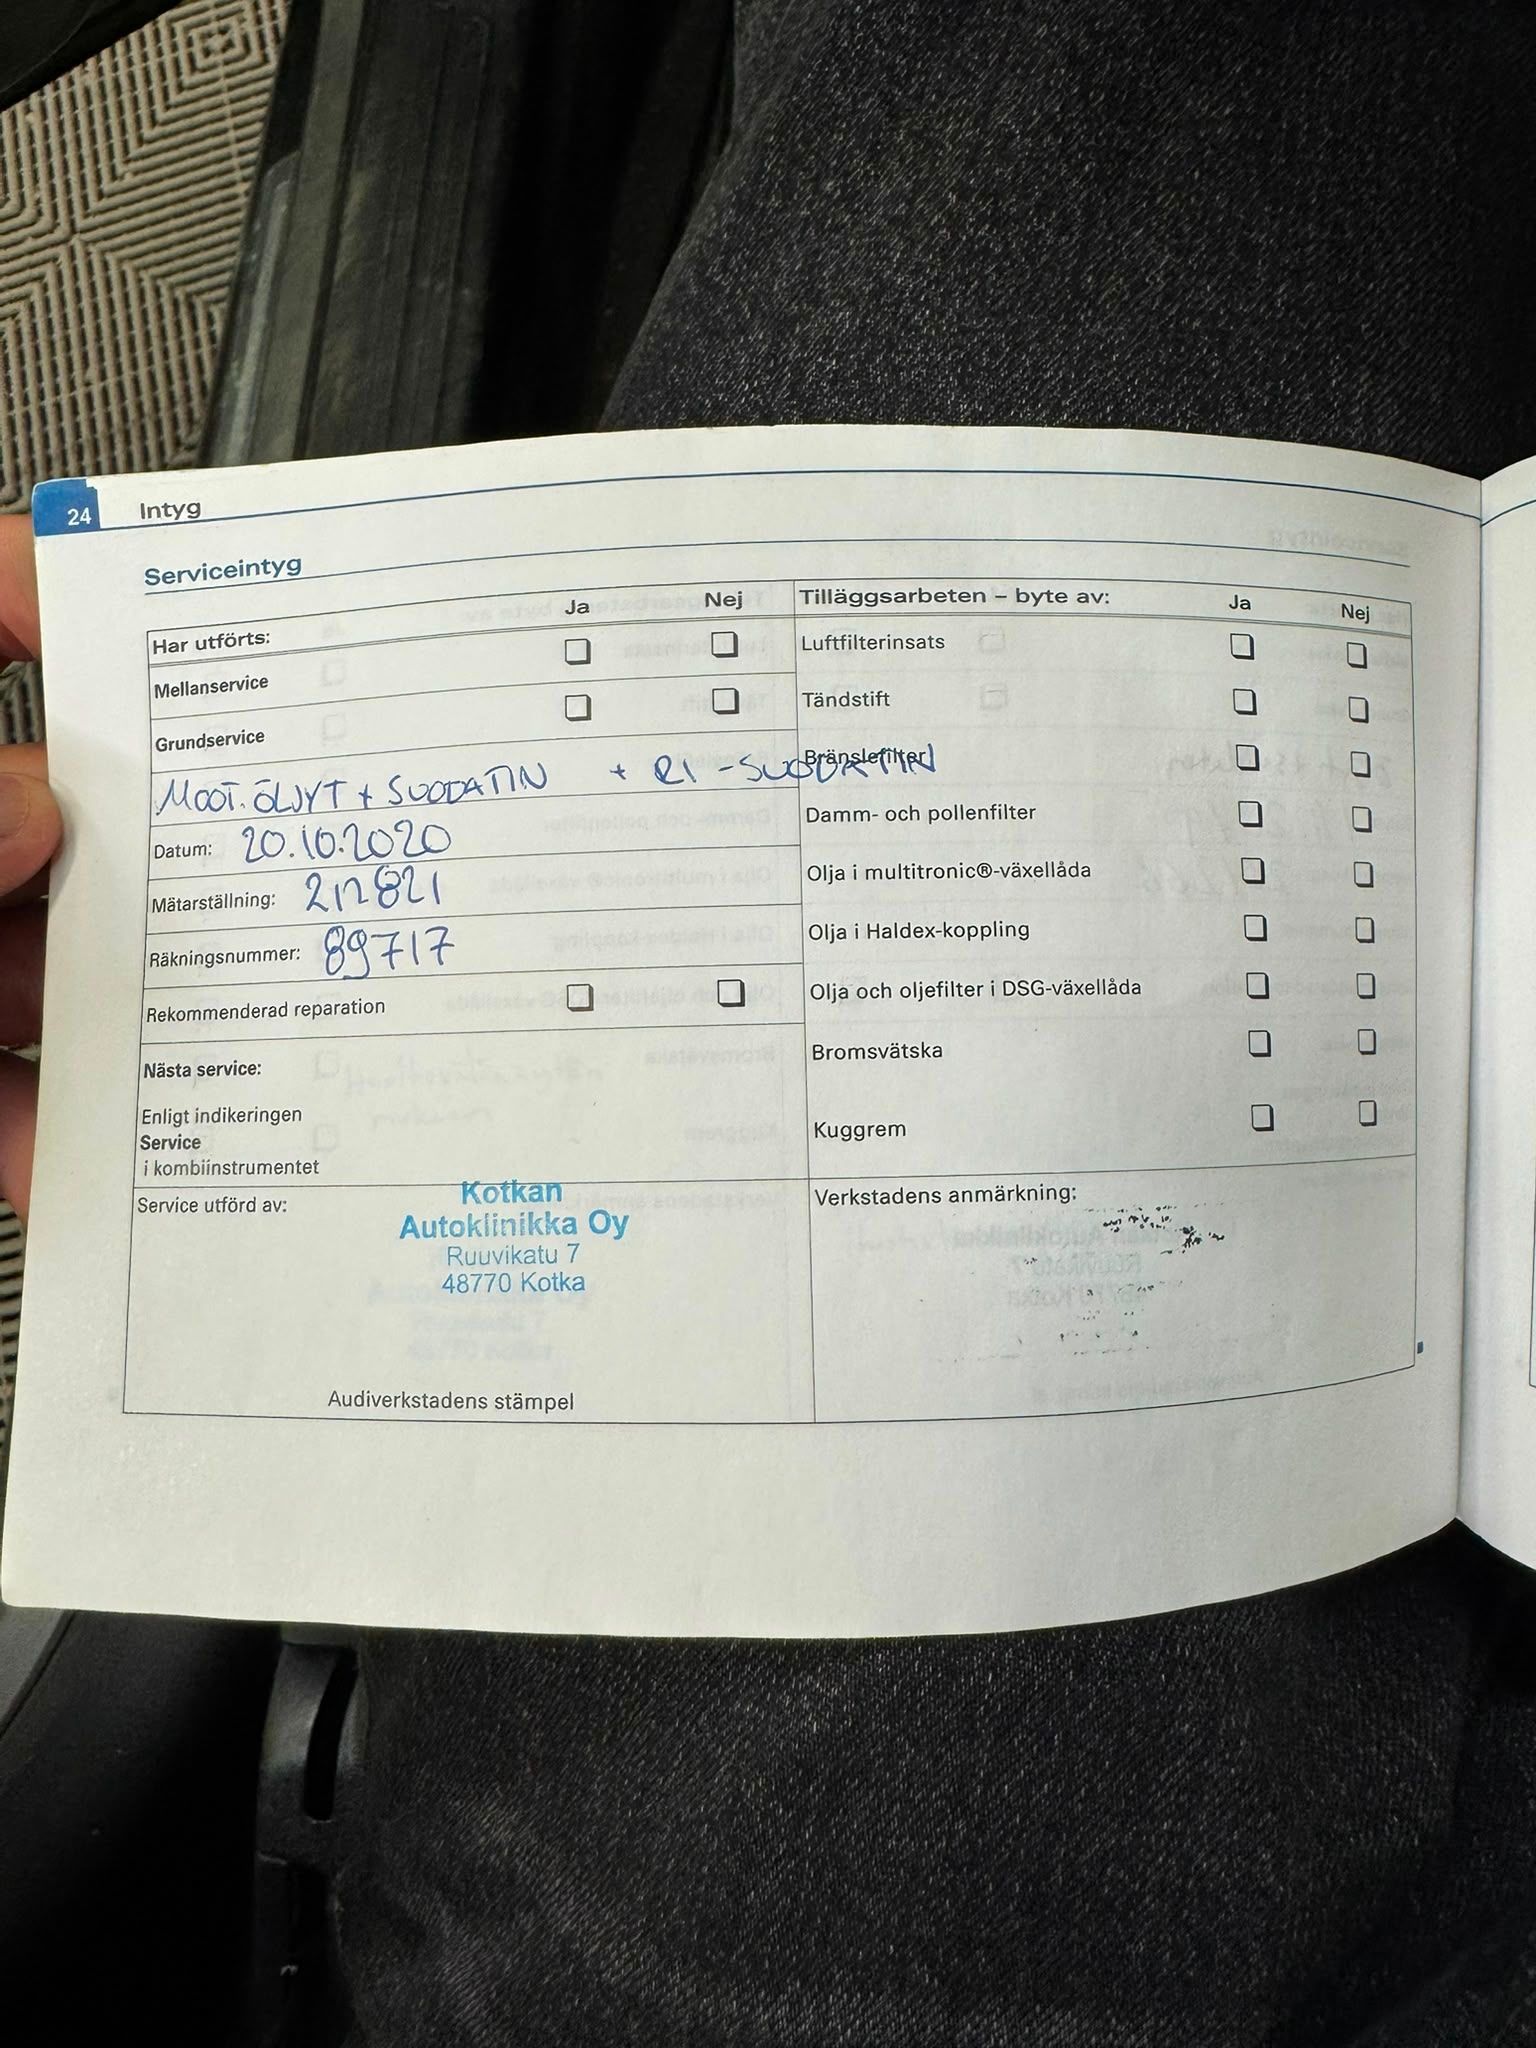 24 Intyg
Serviceintyg
Har utförts: Ja Nej
Mellanservice
Grundservice
MOOT. ÖLJYT + SUODATIN + RI-SUODATIN
Datum: 20.10.2020
Mätarställning: 212821
Räkningsnummer: 89717
Rekommenderad reparation
Nästa service:
Enligt indikeringen
Service
i kombiinstrumentet
Service utförd av:
Kotkan
Autoklinikka Oy
Ruuvikatu 7
48770 Kotka
Audiverkstadens stämpel
Tilläggsarbeten – byte av: Ja Nej
Luftfilterinsats
Tändstift
Bränslefilter
Damm- och pollenfilter
Olja i multitronic®-växellåda
Olja i Haldex-koppling
Olja och oljefilter i DSG-växellåda
Bromsvätska
Kuggrem
Verkstadens anmärkning: